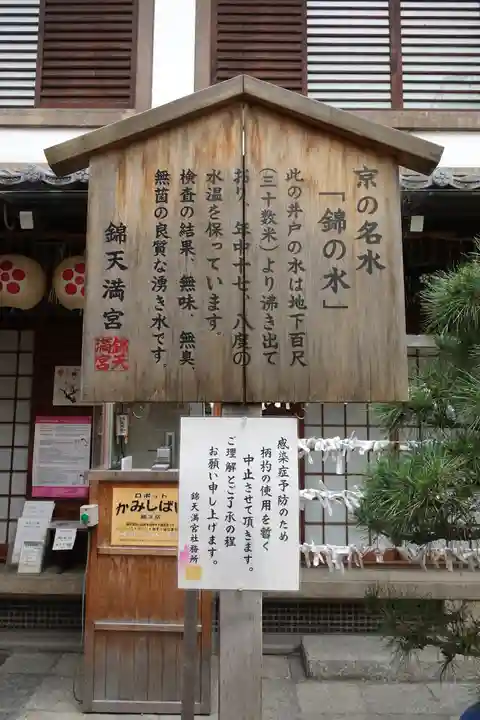 京の名水
「錦の水」
此の井戸の水は地下百尺
(三十数米)より沸き出て
おり、年中十七、八度の
水温を保っています。
検査の結果、無味、無臭、
無菌の良質な湧き水です。
錦天満宮
錦天
満宮
感染症予防のため
柄杓の使用を暫く
中止させて頂きます。
ご理解とご了承の程
お願い申し上げます。
錦天満宮社務所
ロボット
かみしばい